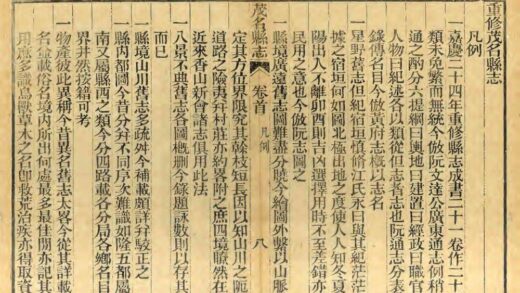 重修茂名縣志
凡例
一嘉慶二十四年重修縣志成書二十一卷作二十
類未免繁而無統今倣阮文達公廣東通志例稍
通之酌分六提綱曰輿地曰建置曰經政曰職官
人物曰紀述各以類從但志者志也阮通志分表
錄傳名目今倣黃府志概以志名
一星野舊志但紀宿垣慎脩江氏永曰與其紀茫茫
據之宿垣何如圖北極出地之度使人人知冬夏
陽出人不離卯酉則吉內選擇用時不至差錯亦
民用之意也今倣阮志圖之
一縣境廣遠舊志圖難盡分曉今繪圖外繫以山脈
茂名縣志 卷首 凡例 八
定其方位界限究其榦枝短長因以知山川之阨
道路之險夷幷村莊亦約畧附之庶四境瞭然在
近來香山新會諸志俱用此法
一八景不典舊志各圖概删今錄題詠數則以存其
而已
一縣境山川舊志多疏舛今補載頗詳幷駁正之
一縣內都圖今昔分幷不同序次難識如隆五都屬
南又屬縣西之類今分四路載各分局各鄉名目
界井然按籍可考
一物產彼此異稱今昔異名舊志太畧今從其詳載
名並載俗名境內所出何處最多最佳間亦記其
用庶多識鳥獸草木之名即救荒治疾亦得取資